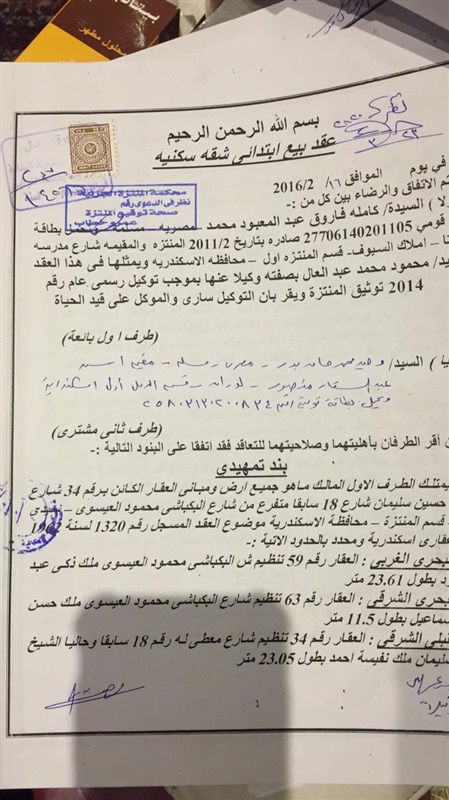 محلول مطهر
بسم الله الرحمن الرحيم
عقد بيع ابتدائى شقه سكنيه
فى يوم الموافق ١٦ 2016/2
تم الاتفاق والرضاء بين كل من :-
لا ) السيدة/ كامله فاروق عبد المعبود محمد – مصريه – مسلمة – بطاقة
قومي 27706140201105 صادره بتاريخ 2011/2 المنتزه والمقيمه شارع مدرسه
نا – املاك السيوف- قسم المنتزه اول – محافظه الاسكندريه ويمثلها فى هذا العقد
يد/ محمود محمد عبد العال بصفته وكيلا عنها بموجب توكيل رسمى عام رقم
2014 توثيق المنتزة ويقر بان التوكيل سارى والموكل على قيد الحياة
(طرف اول بائعة)
محكمة المنتزة الجزئية
نظر فى الدعوى رقم
صحة توقيع المنتزة
يا ) السيد/ وحيد محمد حامد بدر – مصرى – مسلم – مقيم
(طرف ثانى مشترى)
ن أقر الطرفان بأهليتهما وصلاحيتهما للتعاقد فقد اتفقا على البنود التالية :-
بند تمهيدى
يمتلك الطرف الاول المالك ماهو جميع ارض ومبانى العقار الكائن برقم 34 شارع
حسين سليمان شارع 18 سابقا متفرع من شارع البكباشى محمود العيسوى –
– قسم المنتزة – محافظة الاسكندرية موضوع العقد المسجل رقم 1320 لسنة
عقارى اسكندرية ومحدد بالحدود الاتية :-
بحرى الغربي : العقار رقم 59 تنظيم ش البكباشى محمود العيسوى ملك ذكى عبد
ود بطول 23.61 متر
بحرى الشرقي : العقار رقم 63 تنظيم شارع البكباشى محمود العيسوى ملك حسن
سماعيل بطول 11.5 متر
قبلى الشرقي : العقار رقم 34 تنظيم شارع معطى له رقم 18 سابقا وحاليا الشيخ
سليمان ملك نفيسة احمد بطول 23.05 متر
1